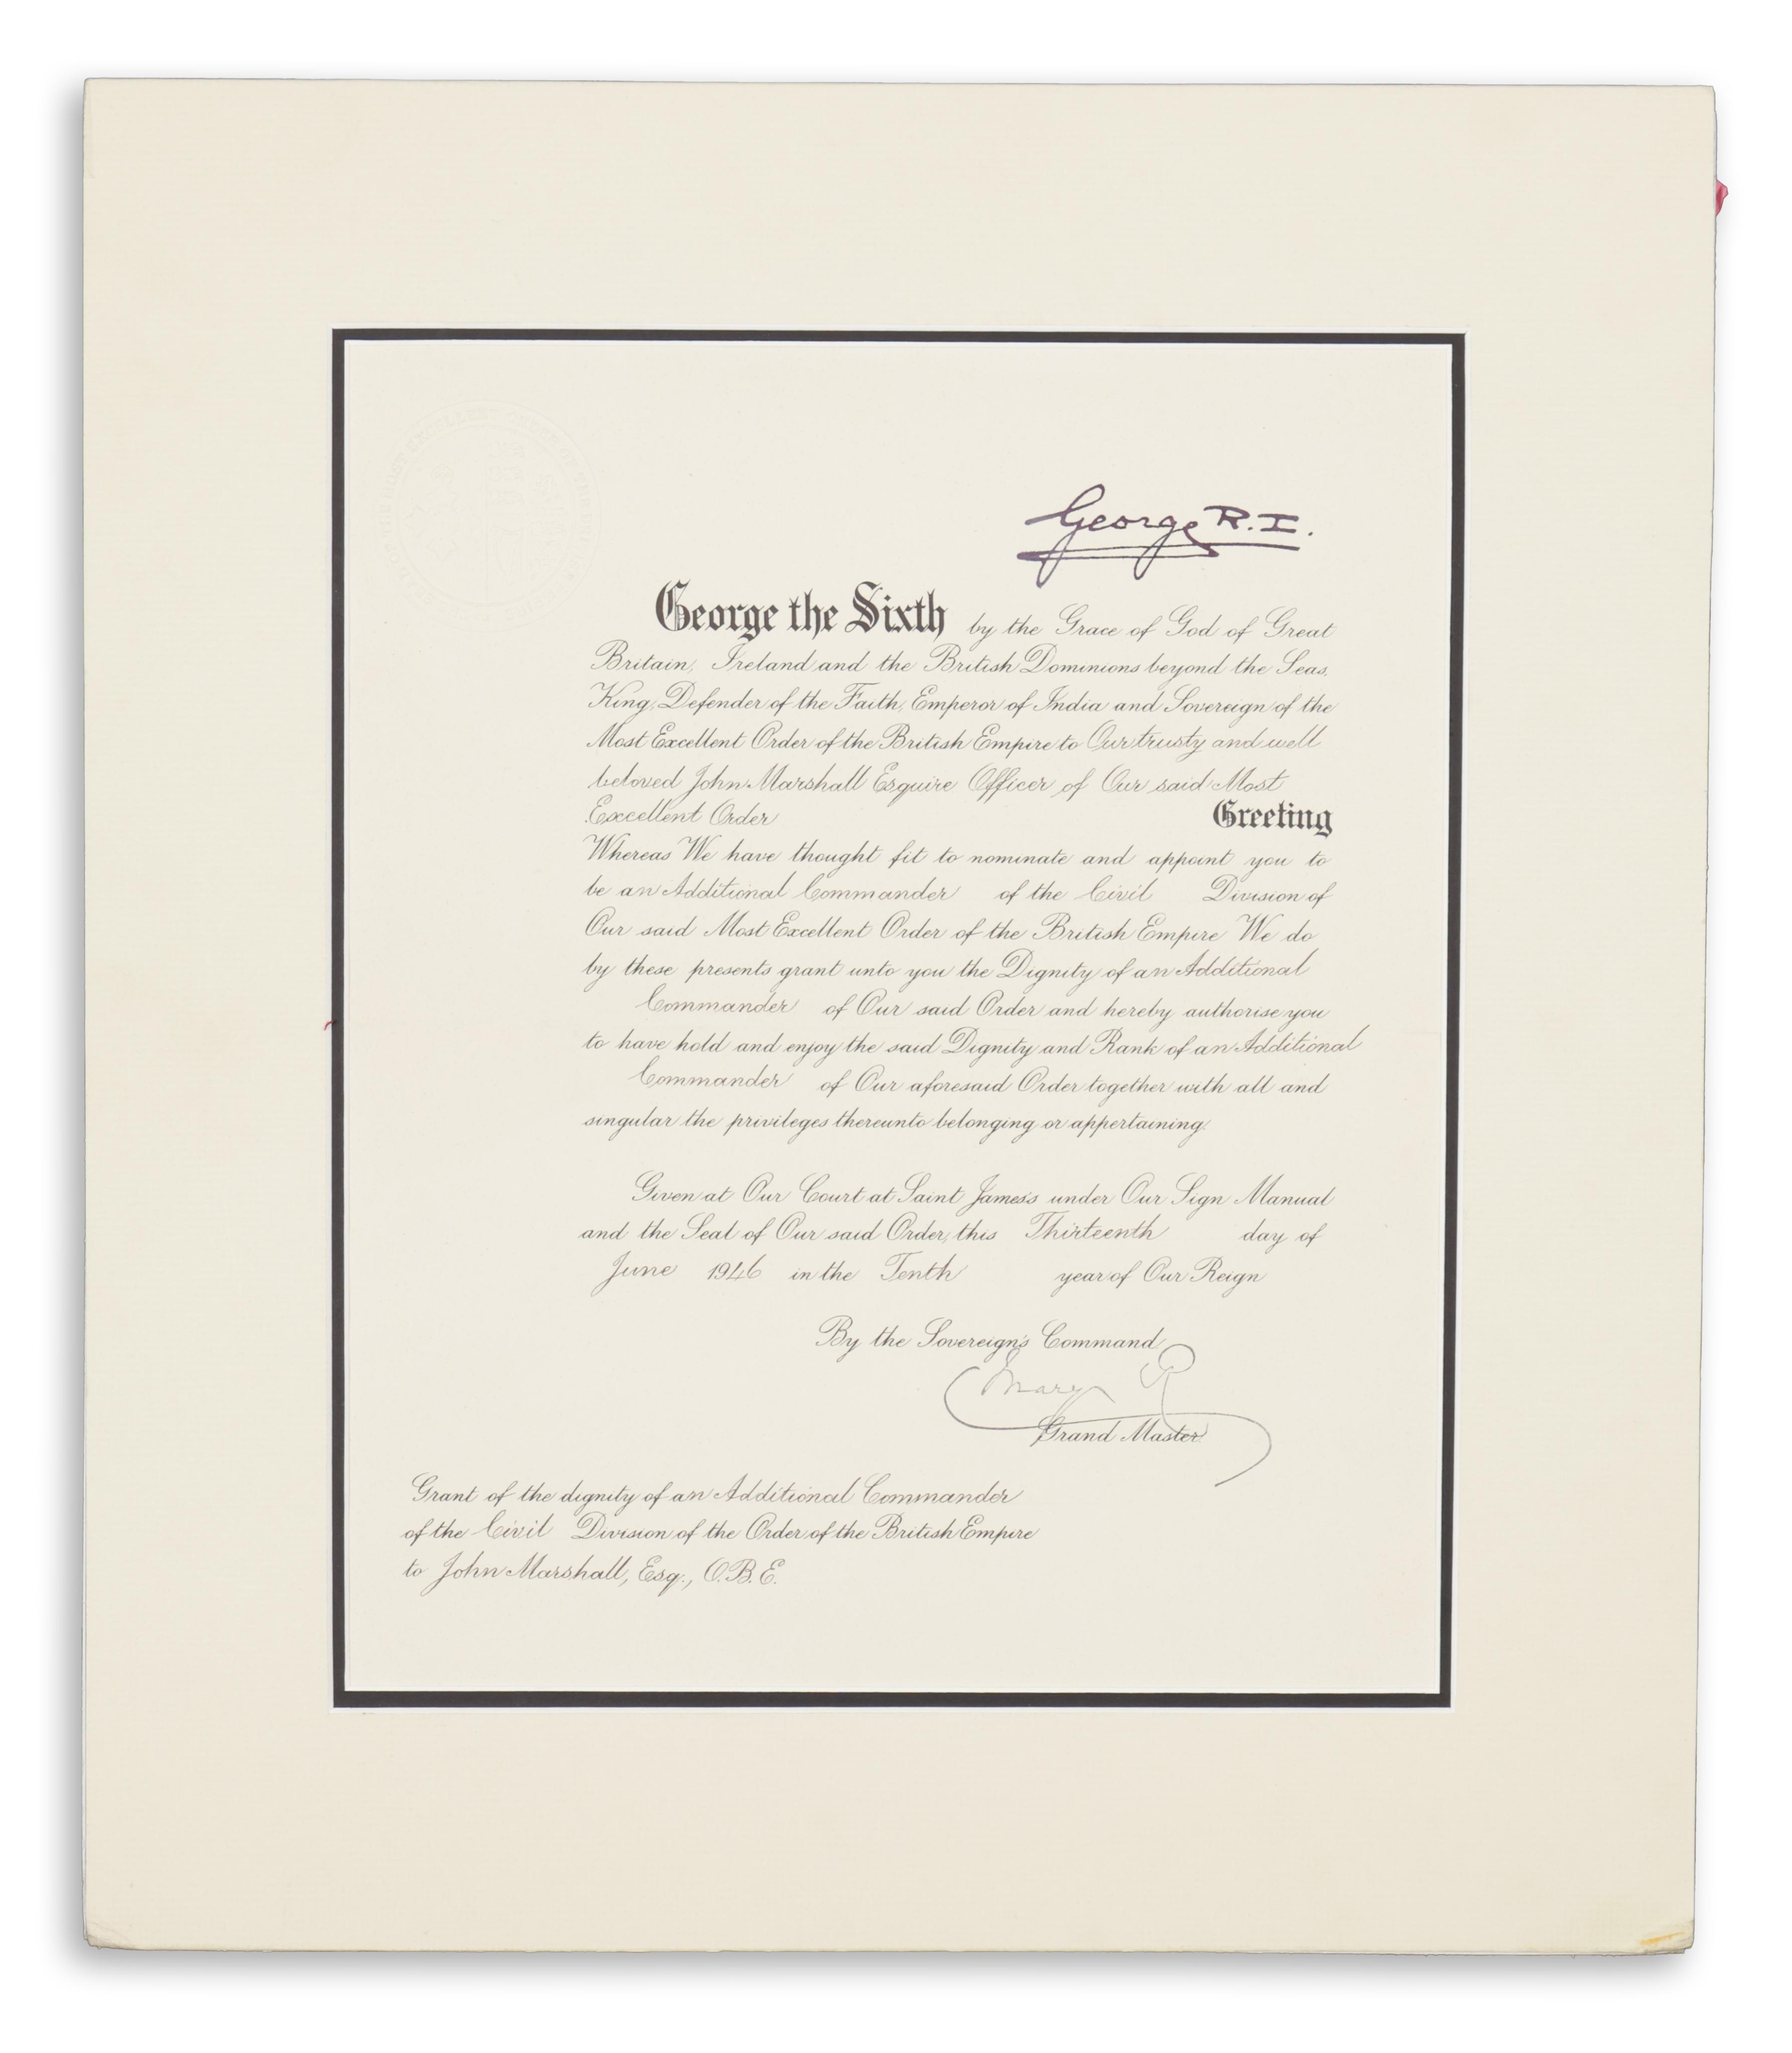 George R.I.
George the Sixth by the Grace of God of Great
Britain, Ireland and the British Dominions beyond the Seas,
King, Defender of the Faith, Emperor of India and Sovereign of the
Most Excellent Order of the British Empire to Our trusty and well
beloved John Marshall Esquire Officer of Our said Most
Excellent Order Greeting
Whereas We have thought fit to nominate and appoint you to
be an Additional Commander of the Civil Division of
Our said Most Excellent Order of the British Empire We do
by these presents grant unto you the Dignity of an Additional
Commander of Our said Order and hereby authorise you
to have hold and enjoy the said Dignity and Rank of an Additional
Commander of Our aforesaid Order together with all and
singular the privileges thereunto belonging or appertaining.
Given at Our Court at Saint James's under Our Sign Manual
and the Seal of Our said Order, this Thirteenth day of
June 1946 in the Tenth year of Our Reign
By the Sovereign's Command
Mary R
Grand Master.
Grant of the dignity of an Additional Commander
of the Civil Division of the Order of the British Empire
to John Marshall, Esq., O.B.E.